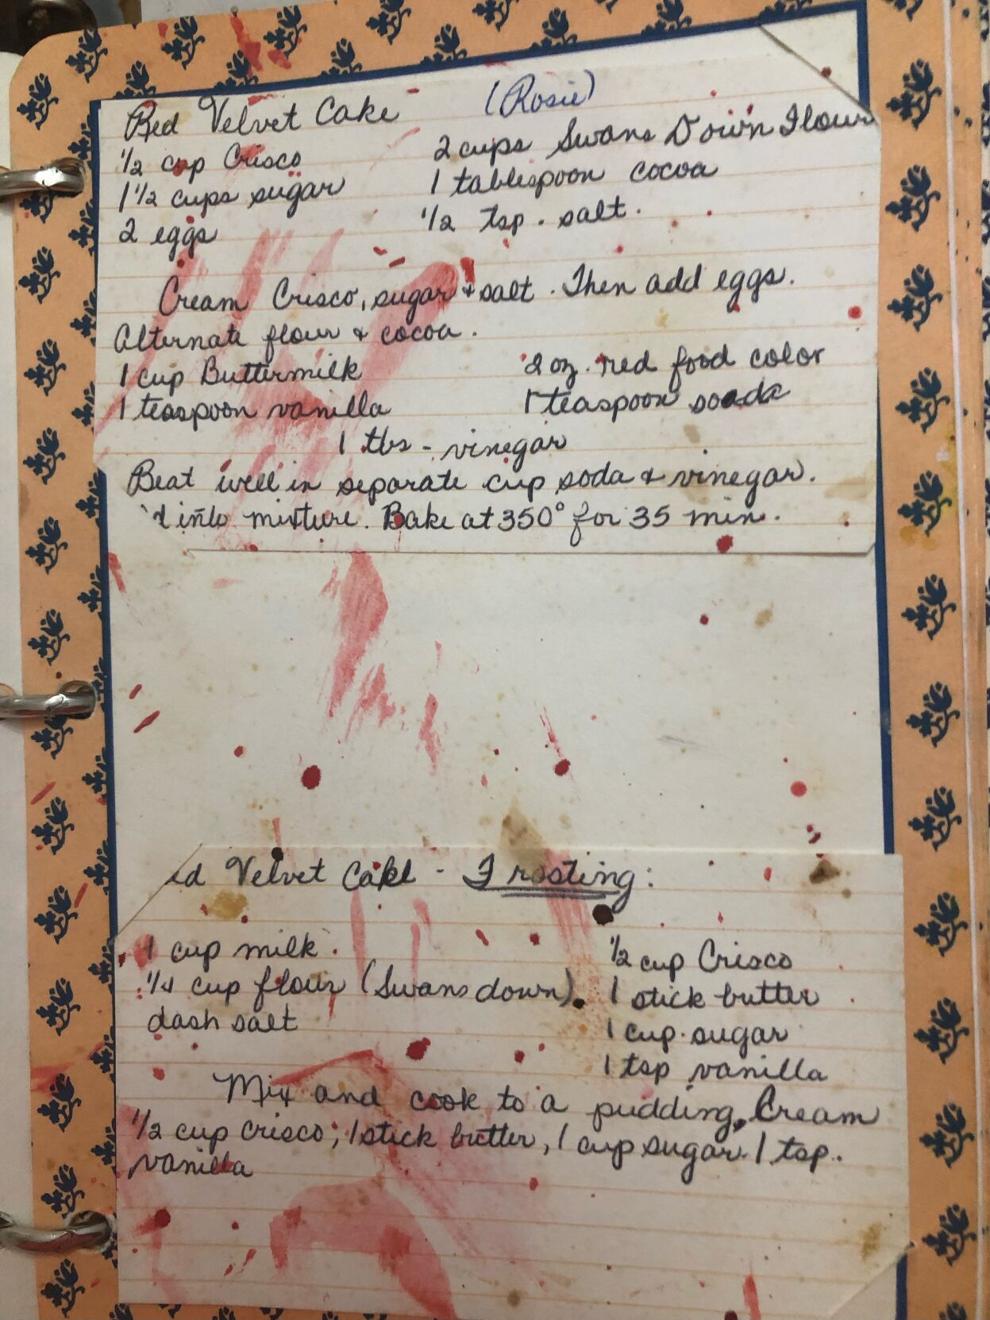 Red Velvet Cake (Rosie)
1/2 cup Crisco 2 cups Swans Down Flour
1 1/2 cups sugar 1 tablespoon cocoa
2 eggs 1/2 tsp. salt.
Cream Crisco, sugar + salt. Then add eggs.
Alternate flour & cocoa.
1 cup Buttermilk 2 oz. red food color
1 teaspoon vanilla 1 teaspoon soada
1 tbs - vinegar
Beat well in separate cup soda & vinegar.
d into mixture. Bake at 350° for 35 min.
ed Velvet Cake - Frosting:
1 cup milk 1/2 cup Crisco
1/4 cup flour (Swans down) 1 stick butter
dash salt 1 cup sugar
1 tsp vanilla
Mix and cook to a pudding, Cream
1/2 cup crisco, 1 stick butter, 1 cup sugar. 1 tsp.
vanilla